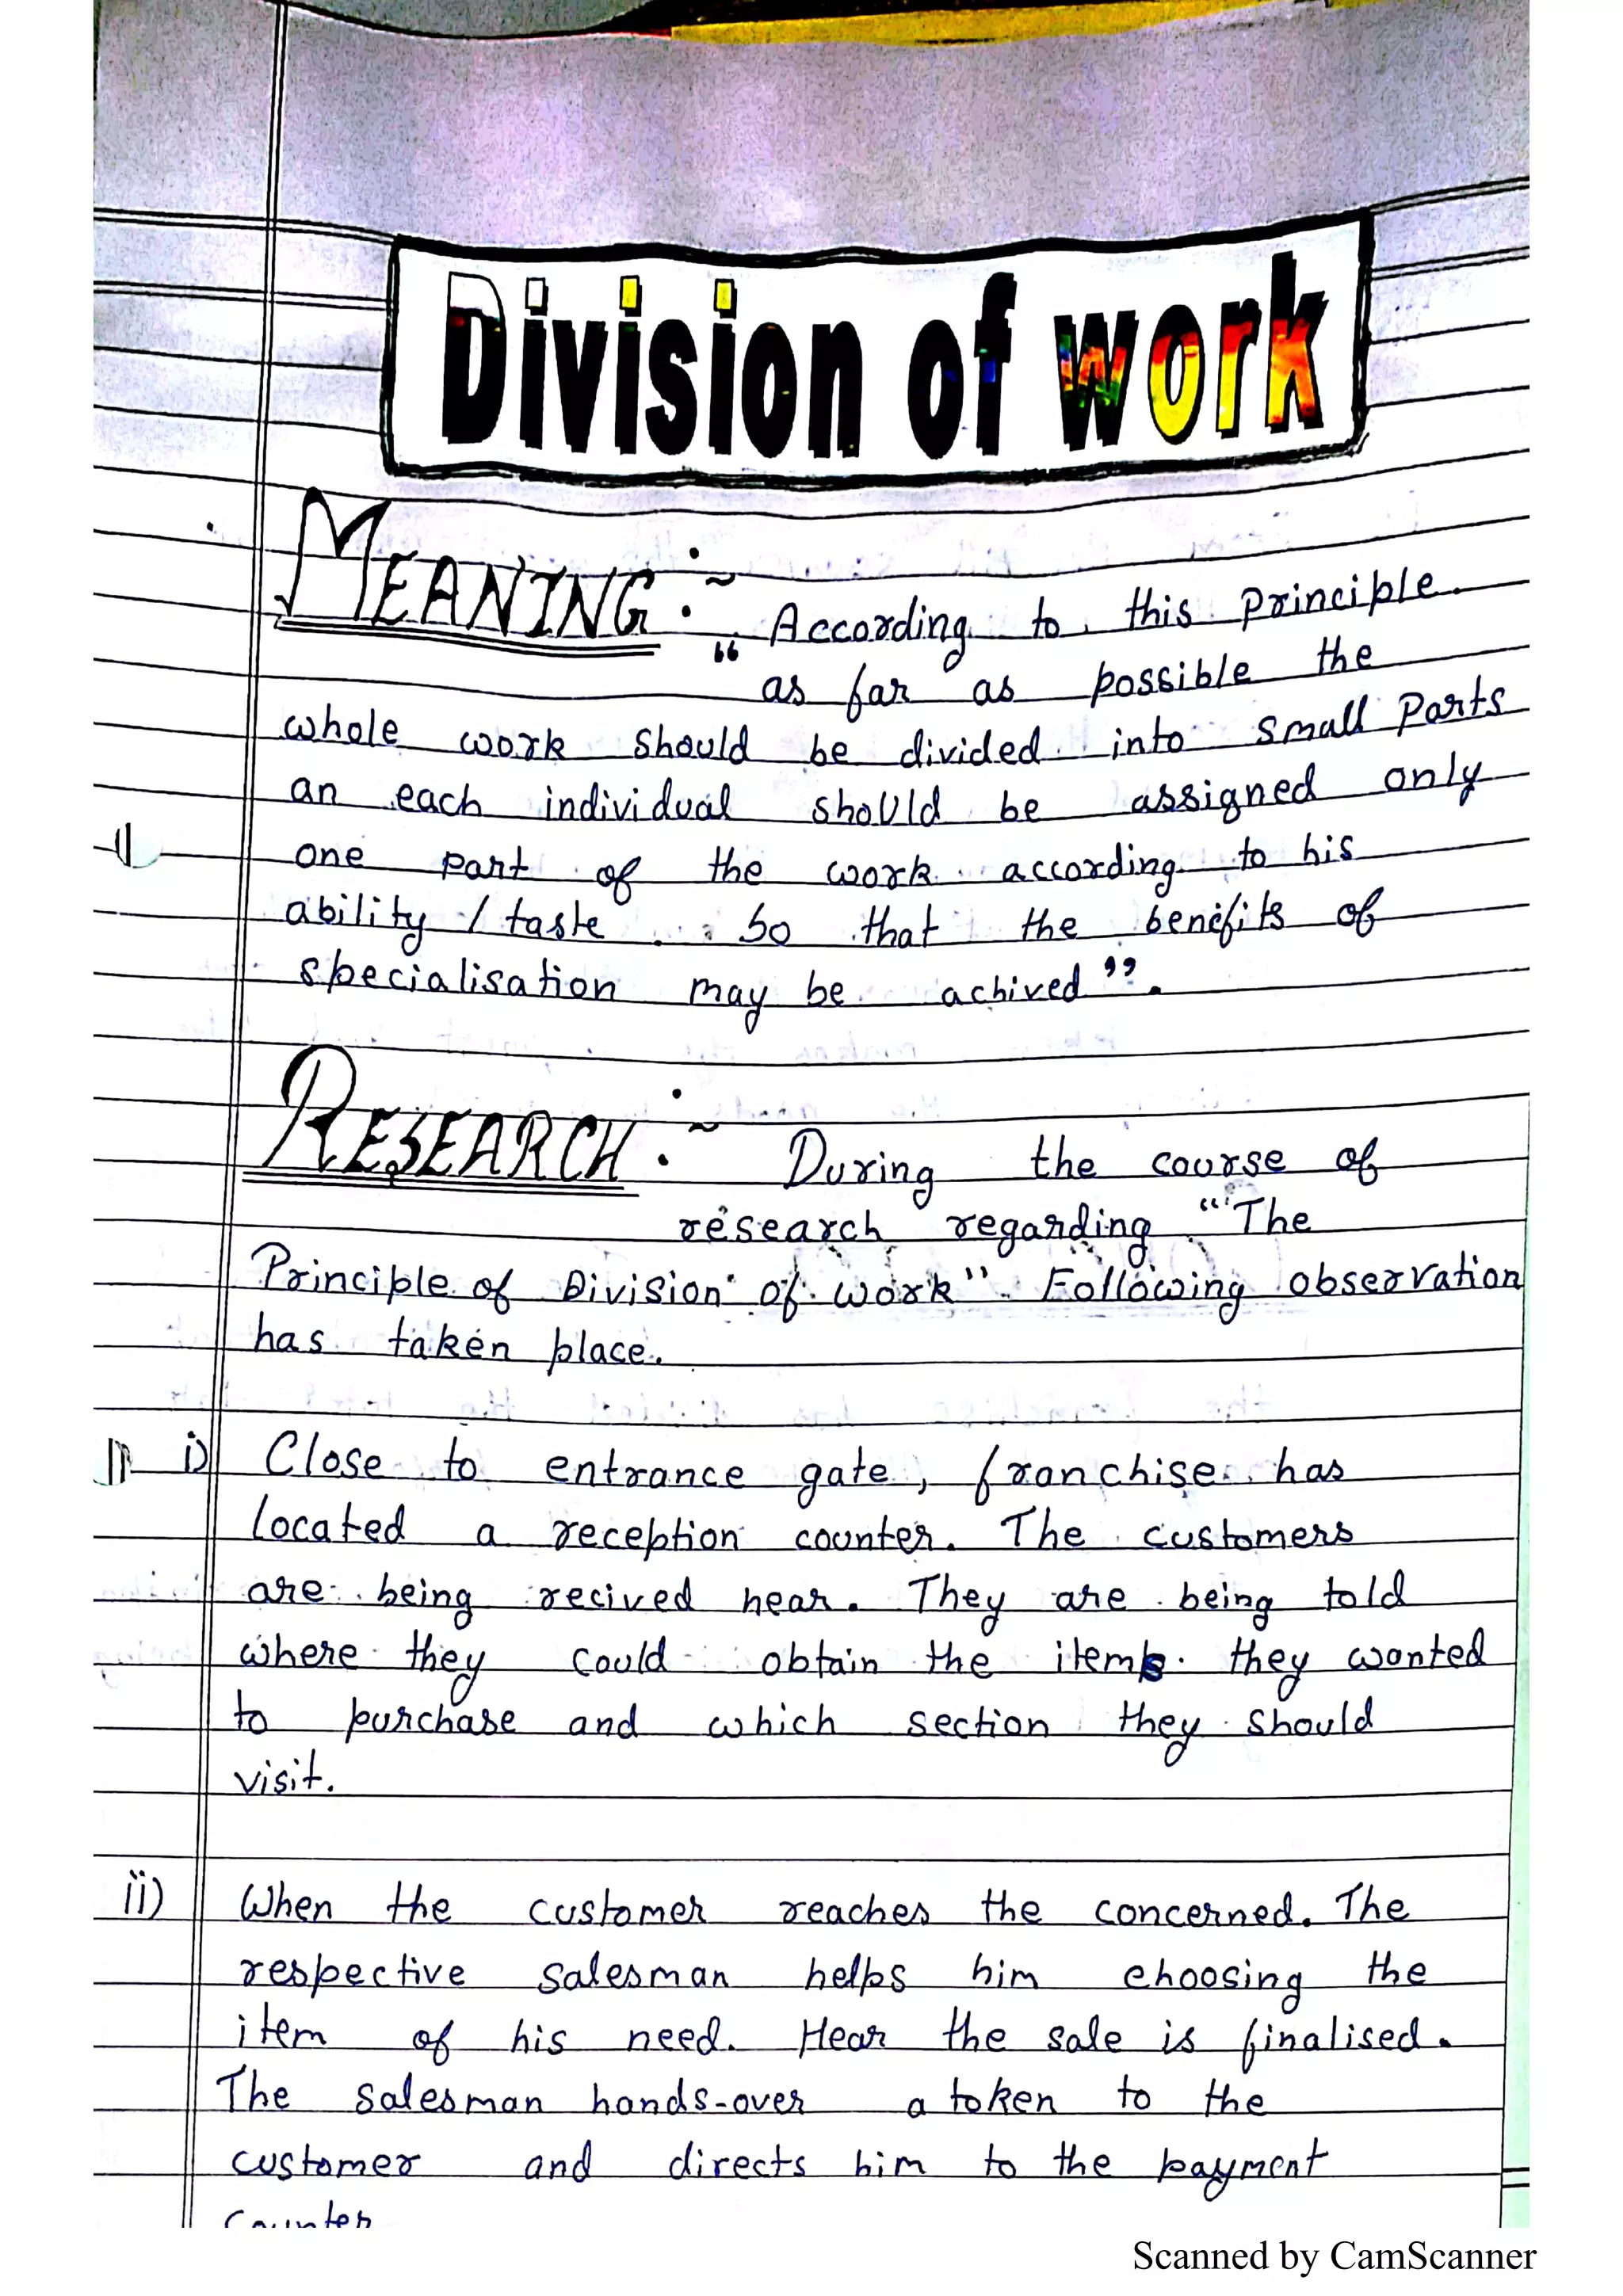 Division of work
MEANING :~
“ According to this Principle
as far as possible the
whole work should be divided into small Parts
an each individual should be assigned only
one part of the work according to his
ability / taste so that the benefits of
specialisation may be achived ”.
RESEARCH :~ During the course of
research regarding “The
Principle of Division of work” Following observation
has taken place.
i) Close to entrance gate, franchise has
located a reception counter. The customers
are being recived hear. They are being told
where they could obtain the items they wanted
to purchase and which section they should
visit.
ii) When the customer reaches the concerned. The
respective salesman helps him choosing the
item of his need. Hear the sale is finalised.
The salesman hands-over a token to the
customer and directs him to the payment
counter
Scanned by CamScanner